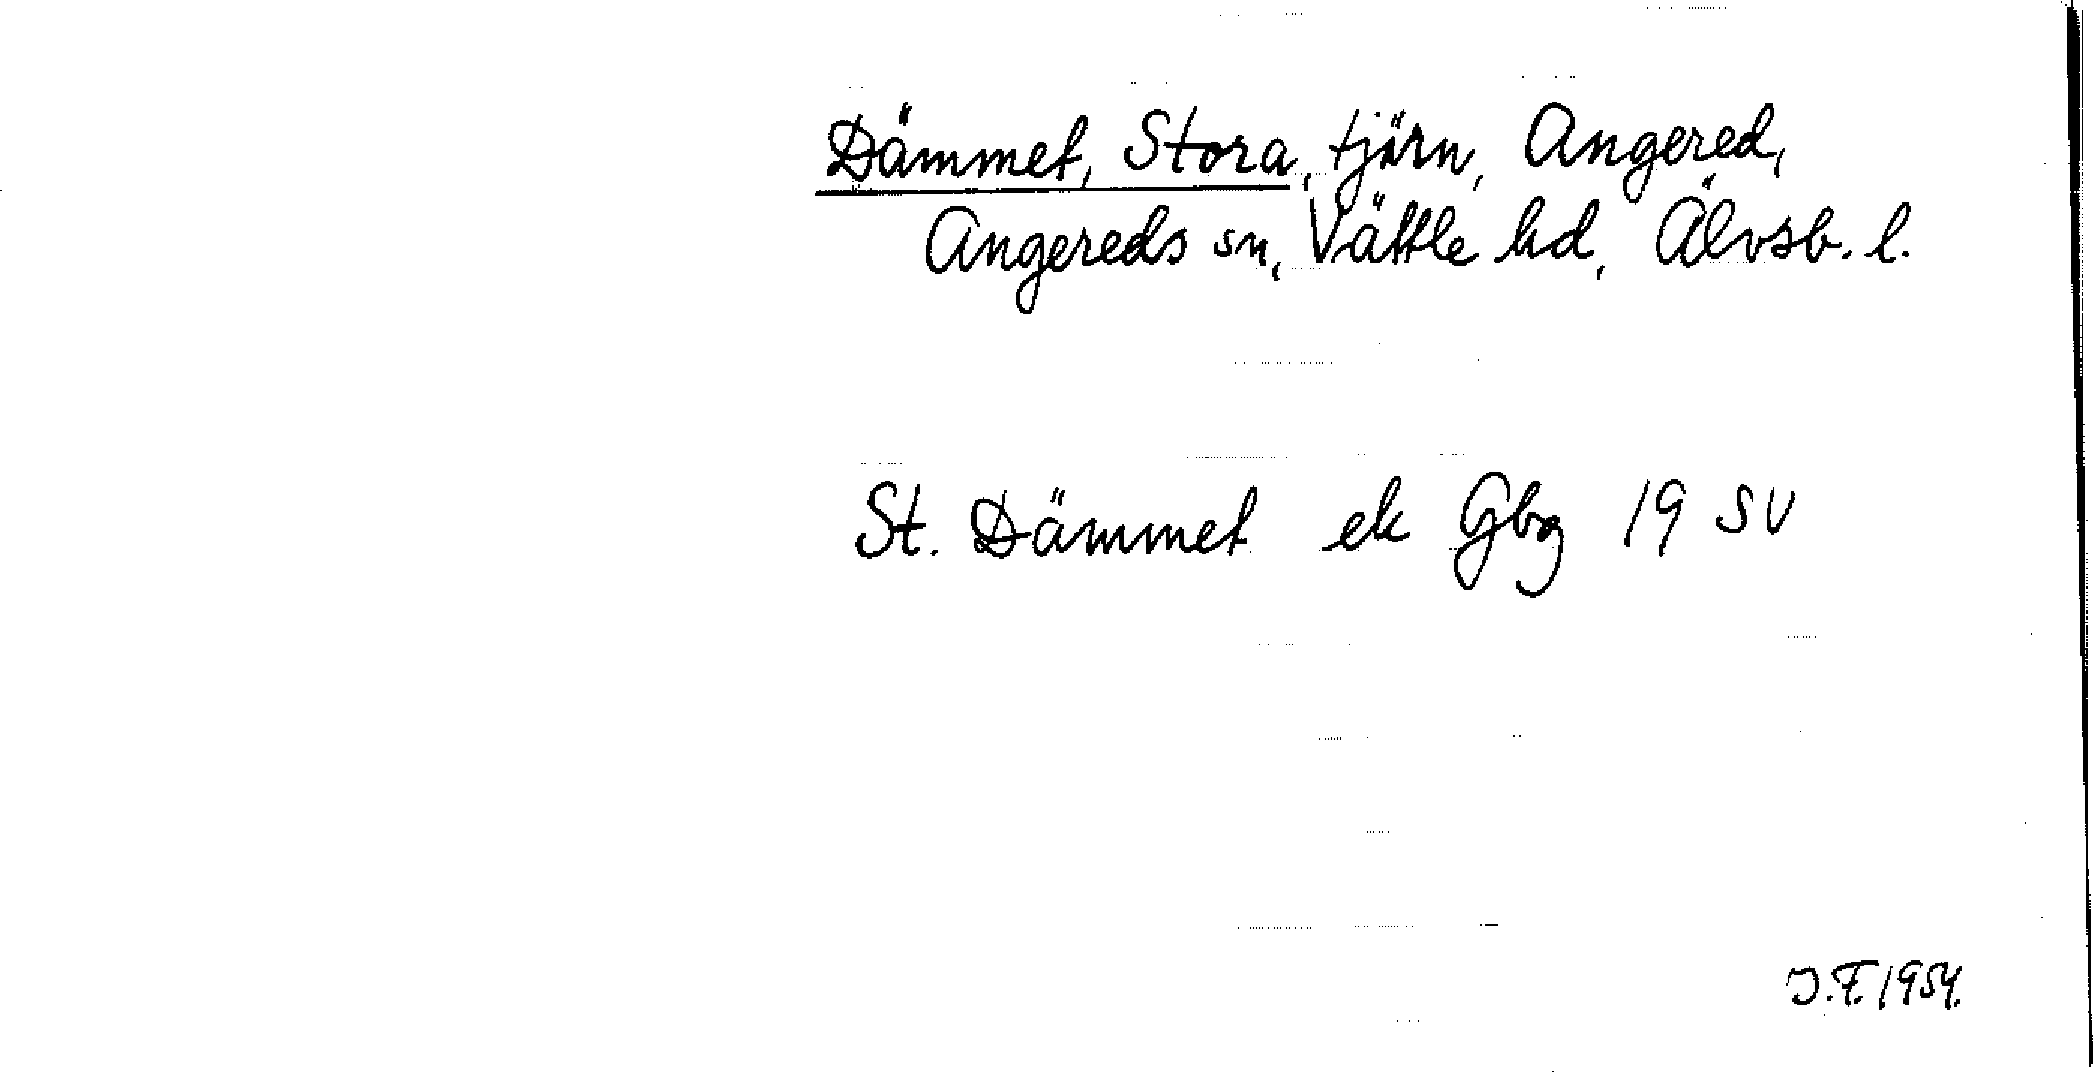 Dämmet, Stora, tjärn, Angered,
Angereds sn, Vättle hd, Älvsb. l.
St. Dämmet ek Gbg 19 SV
J.F. 1954.